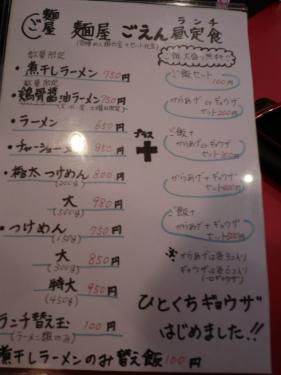 麺屋 ごえん 昼定食
ランチ
数量限定
・煮干しラーメン 750円
数量限定
・鶏骨醤油ラーメン 750円
・ラーメン 650円
・チャーシューメン
プラス
+
・極太つけめん 800円
(200g)
大 980円
(500g)
・つけめん 750円
(150g)
大 850円
(300g)
特大 950円
(450g)
ランチ替え玉 100円
(ラーメン類のみ)
煮干しラーメンのみ替え飯 100円
ご飯大盛り無料
ご飯セット
100円
からあげ or ギョウザ
セット 200円
ご飯+
からあげ or ギョウザ
セット 300円
からあげ+ギョウザ
セット
ご飯+
からあげ+ギョウザ
セット
※からあげは
ギョウザは
ひとくちギョウザ
はじめました!!